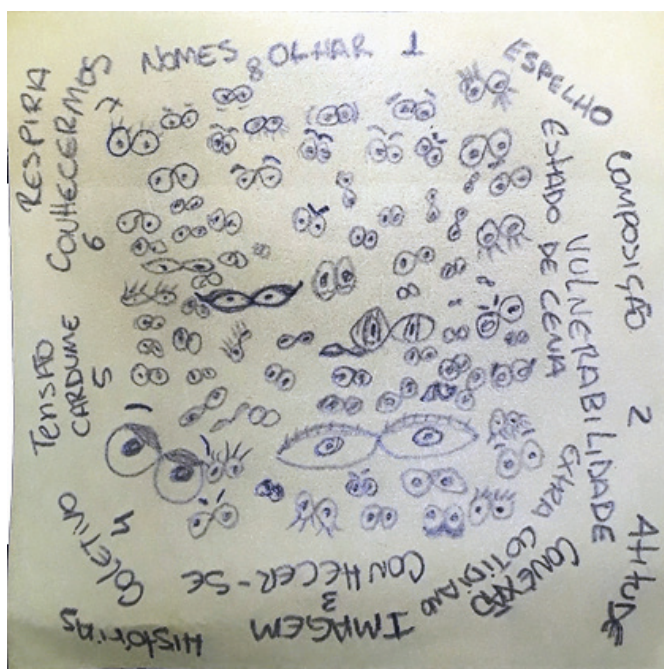 NOMES 8 OLHAR 1
ESPELHO
COMPOSIÇÃO 2 ATITUDE
ESTADO DE CENA
VULNERABILIDADE
EXTRA COTIDIANO
CONEXÃO
CONHECER-SE
3
IMAGEM
HISTÓRIAS
COLETIVO
4
TENSÃO
CARDUME
5
RESPIRA
CONHECERMOS
6
7